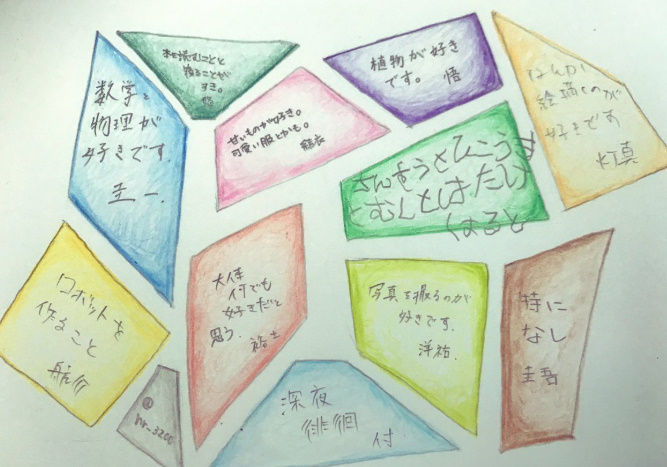 数学と
物理が
好きです。
圭一.
本を読むことと
寝ることが
すき。
悟
甘いものが好き。
可愛い服とかも。
植物が好き
です。 悟
なんか
絵描くのが
好きです
灯真
さんすうとひこうき
とむしとはたけ
はると
ロボットを
作ること
航介
大体
何でも
好きだと
思う.
祐士
写真を撮るのが
好きです.
洋祐.
特に
なし
圭吾
深夜
徘徊
付